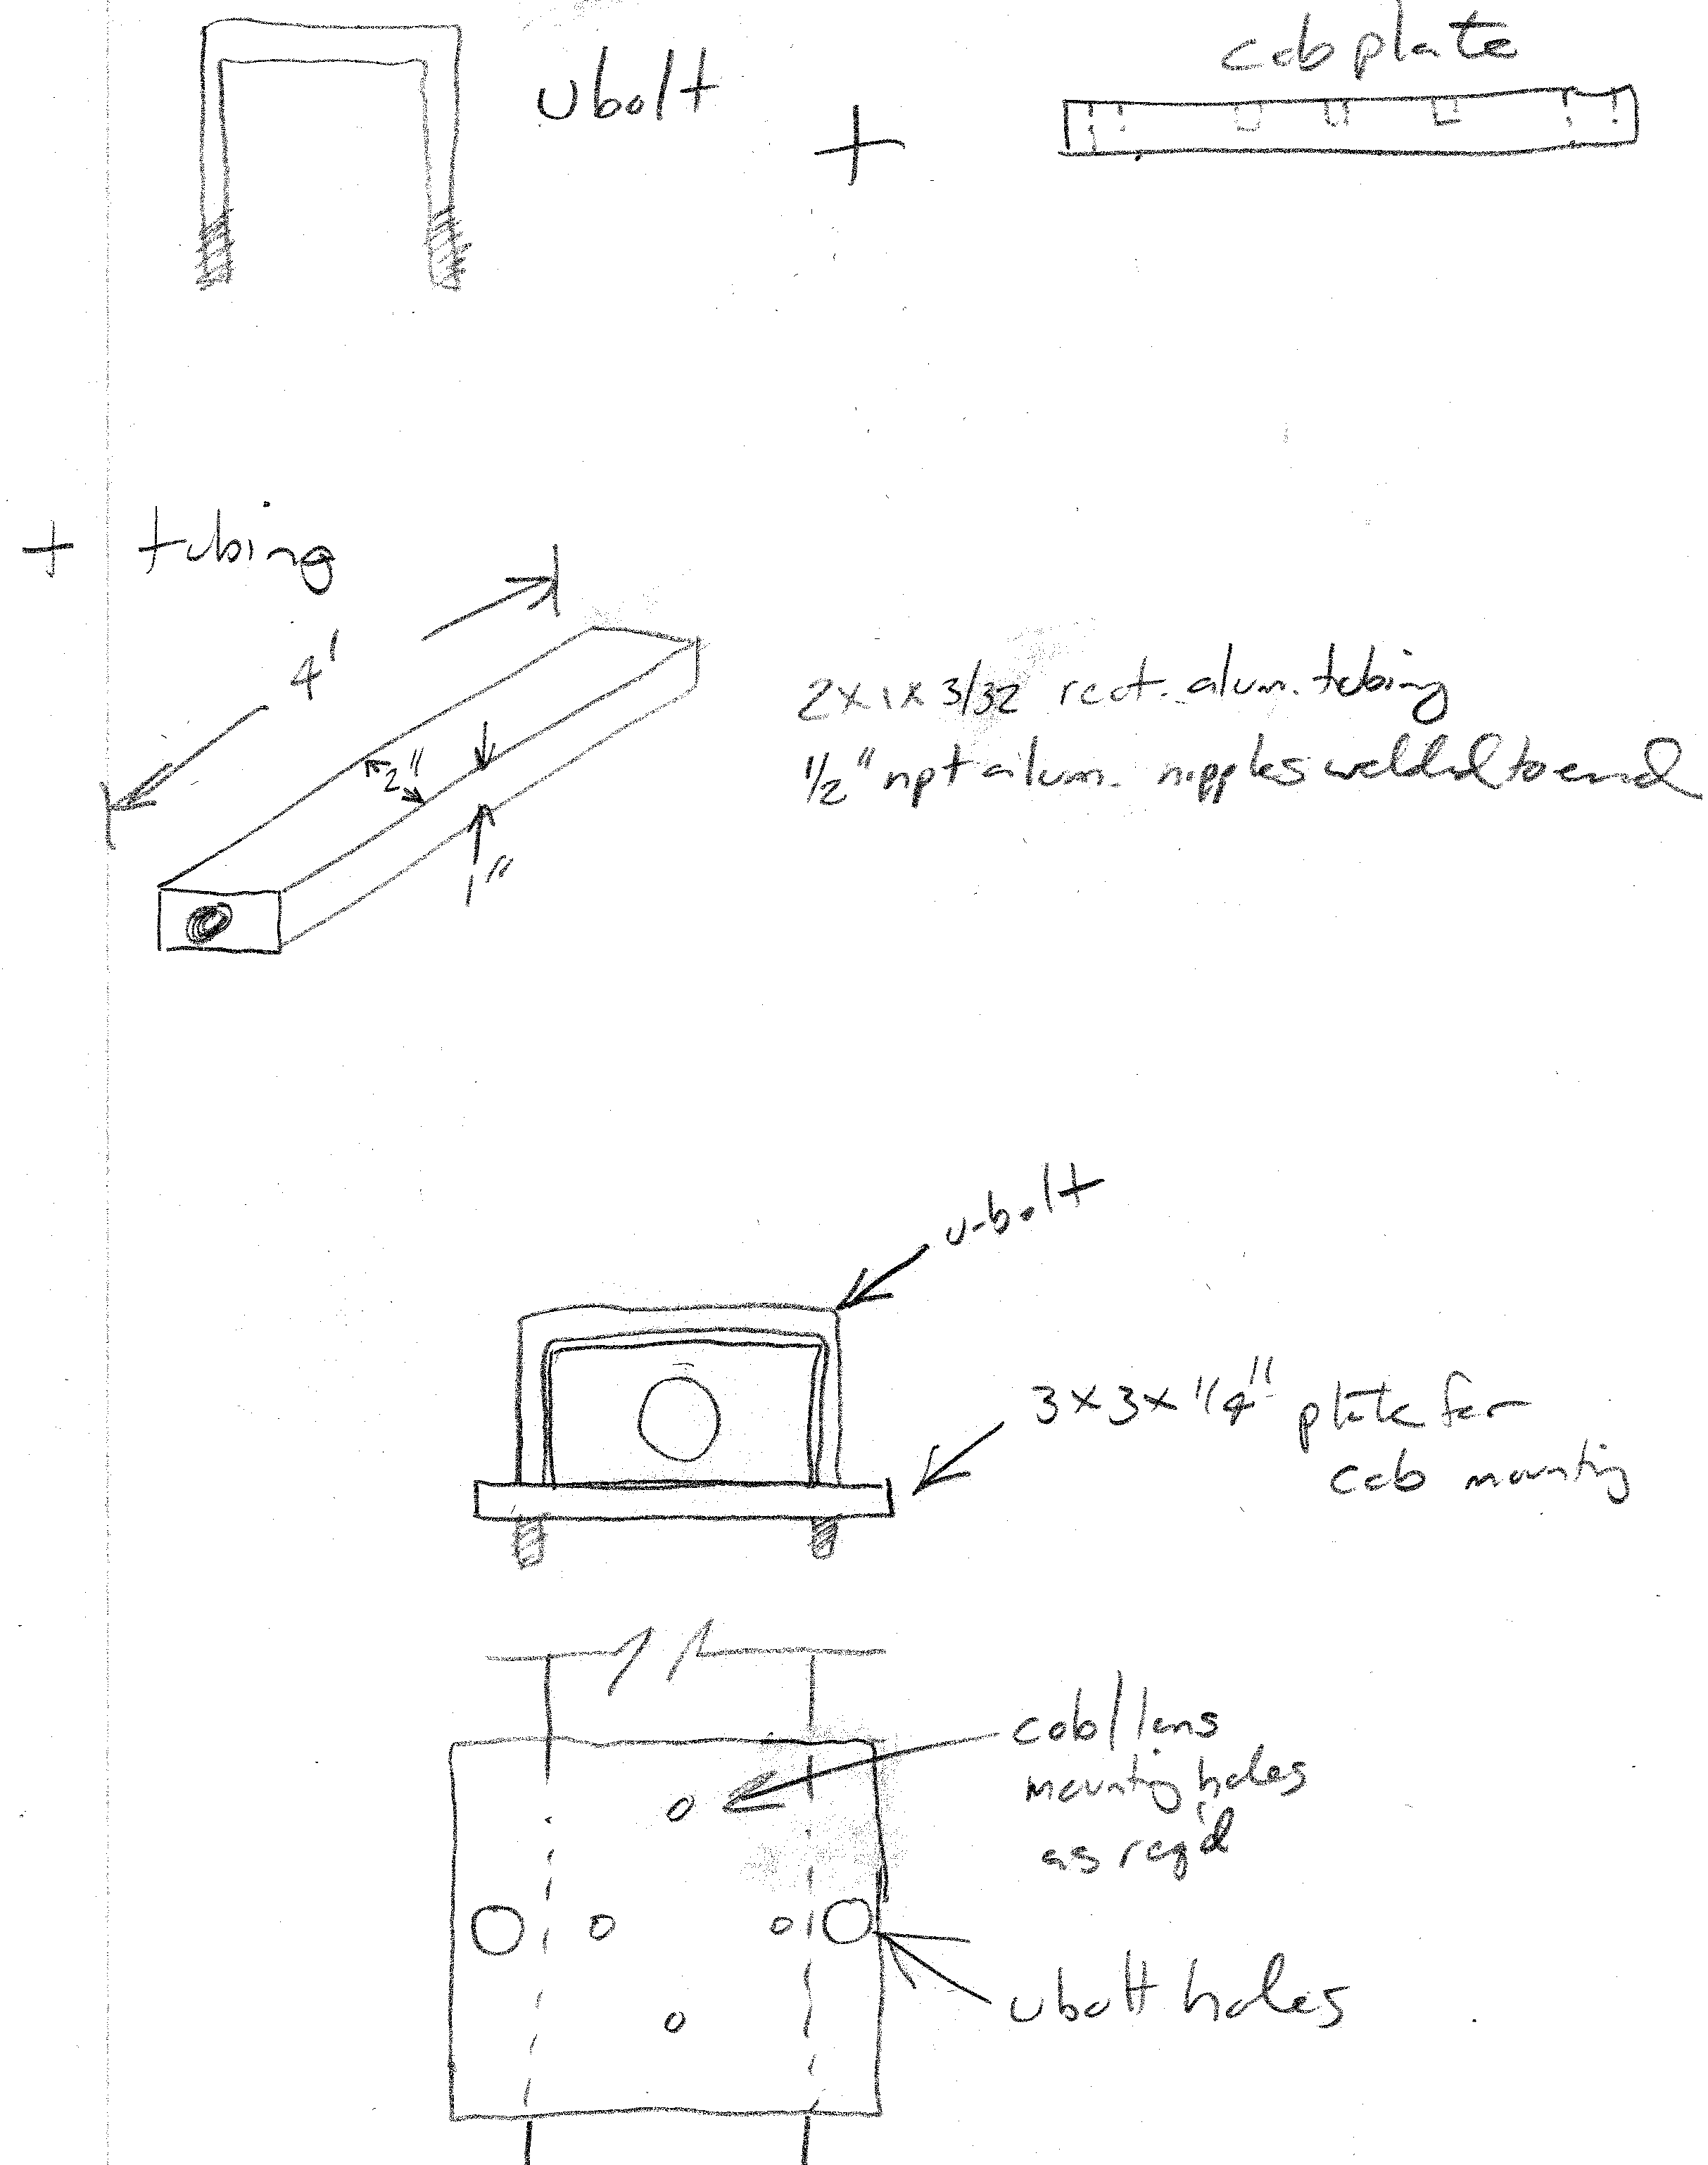 ubolt
+
cob plate
+ tubing
4'
2"
1"
2x1x3/32 rect. alum. tubing
1/2" npt alum. nipples welded to end
u-bolt
3x3x1/4" plate for
cob mounting
cob/lens
mounting holes
as req'd
ubolt holes